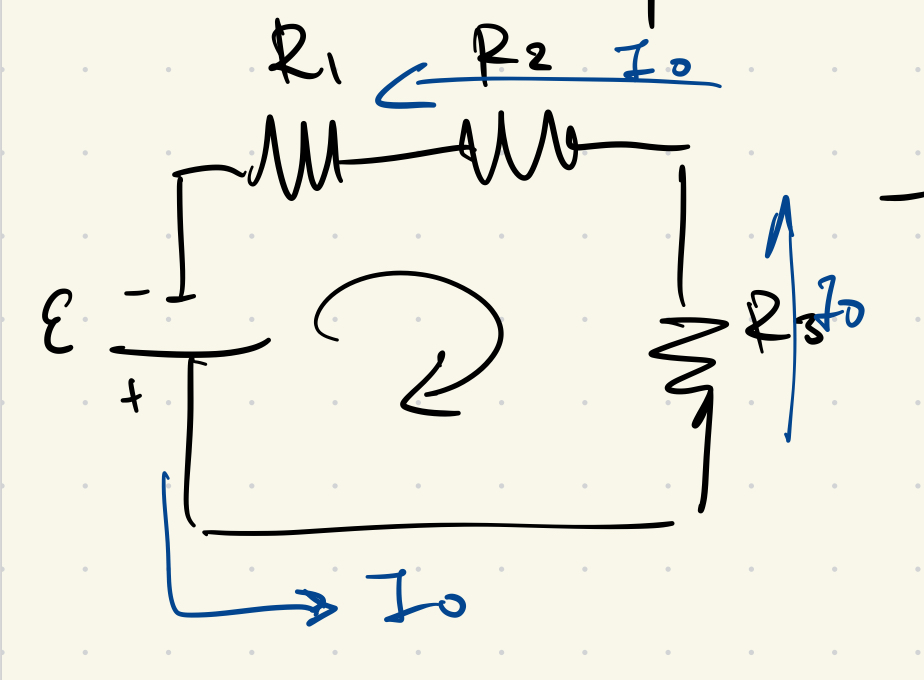 R1 R2 I0
ε - R3 I0
+
I0